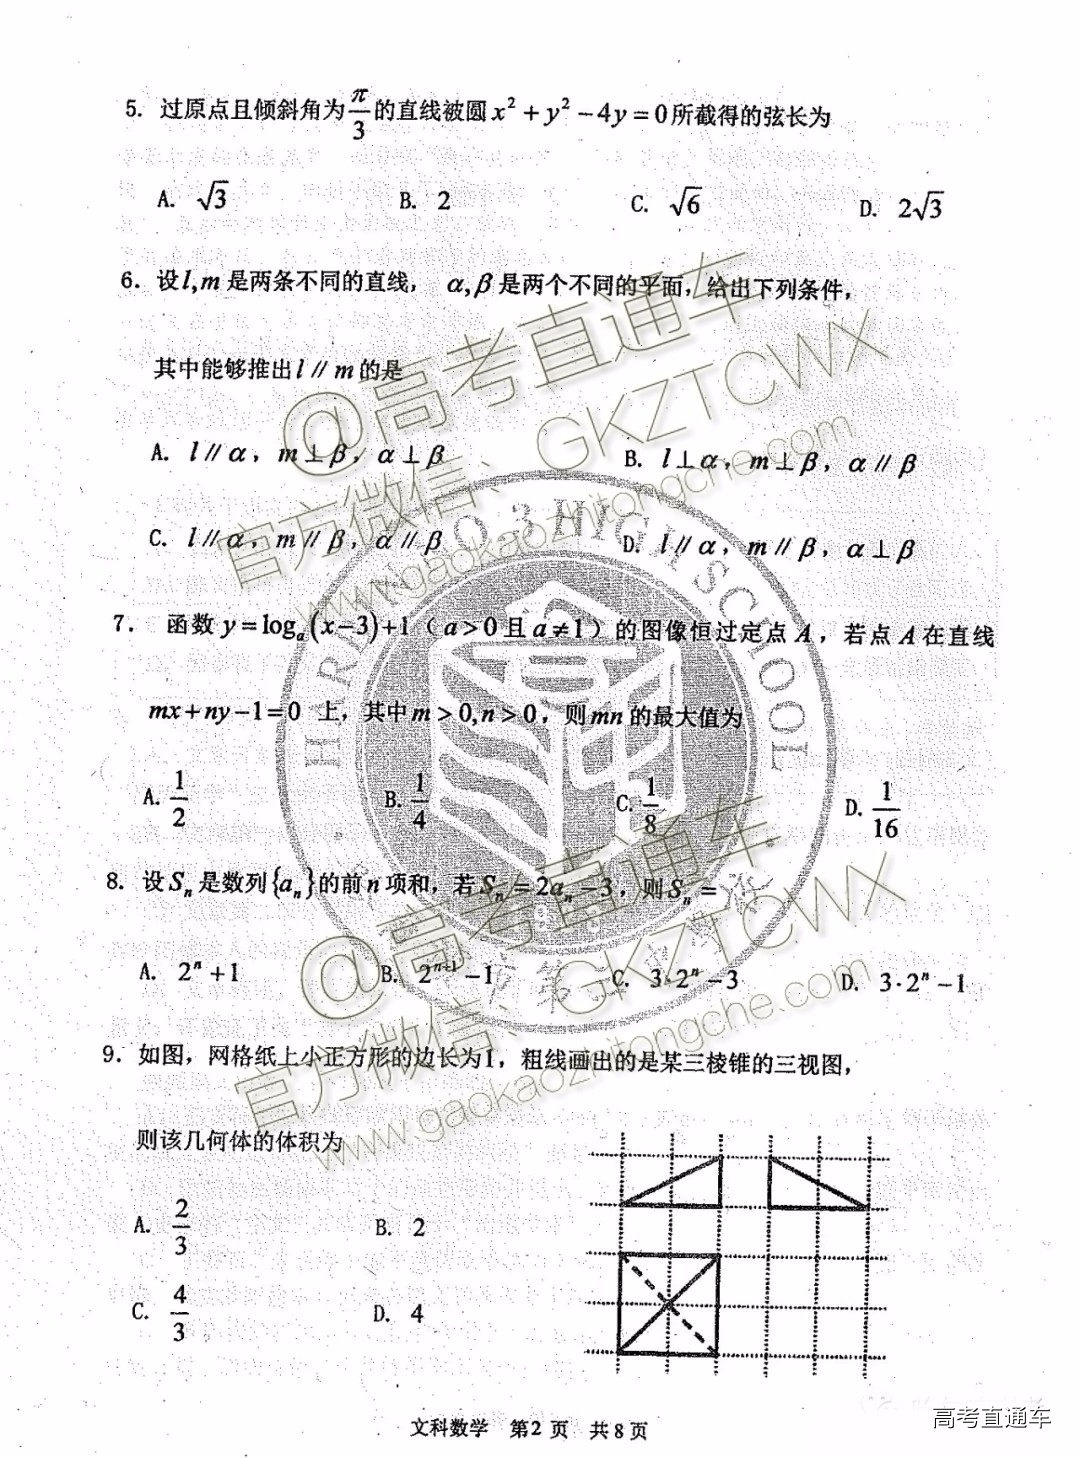 5. 过原点且倾斜角为 π/3 的直线被圆 x² + y² − 4y = 0 所截得的弦长为
A. √3 B. 2 C. √6 D. 2√3
6. 设 l,m 是两条不同的直线， α,β 是两个不同的平面，给出下列条件，
其中能够推出 l // m 的是
A. l // α，m ⊥ β，α ⊥ β B. l ⊥ α，m ⊥ β，α // β
C. l // α，m // β，α // β D. l // α，m // β，α ⊥ β
7. 函数 y = logₐ(x−3)+1（a>0 且 a≠1）的图像恒过定点 A，若点 A 在直线
mx + ny −1 = 0 上，其中 m > 0, n > 0，则 mn 的最大值为
A. 1/2 B. 1/4 C. 1/8 D. 1/16
8. 设 Sₙ 是数列 {aₙ} 的前 n 项和，若 Sₙ = 2aₙ − 3，则 Sₙ =
A. 2ⁿ + 1 B. 2ⁿ⁺¹ − 1 C. 3·2ⁿ − 3 D. 3·2ⁿ − 1
9. 如图，网格纸上小正方形的边长为1，粗线画出的是某三棱锥的三视图，
则该几何体的体积为
A. 2/3 B. 2
C. 4/3 D. 4
文科数学 第2页 共8页
高考直通车
@高考直通车
官方微信、GKZTCWX
www.gaokaozhitongche.com
@高考直通车
官方微信、GKZTCWX
www.gaokaozhitongche.com